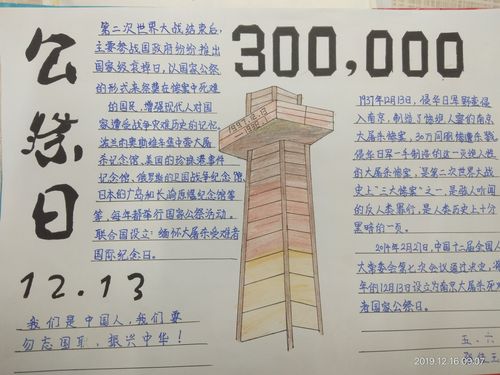 公祭日
12.13
第二次世界大战结束后，
主要参战国政府纷纷推出
国家级哀悼日，以国家公祭
的形式来祭奠在惨案中死难
的国民，增强现代人对国
家遭受战争灾难历史的记忆。
波兰的奥斯维辛集中营大屠
杀记念馆、美国的珍珠港事件
记念馆、俄罗斯的卫国战争纪念馆、
日本的广岛和长崎原爆纪念馆等
等，每年都举行国家公祭活动。
联合国设立：缅怀大屠杀受难者
国际纪念日。
我们是中国人，我们要
勿忘国耻，振兴中华！
300,000
1937.12.13
1937年12月13日，侵华日军野蛮侵
入南京，制造了惨绝人寰的南京
大屠杀惨案，30万同胞惨遭杀戮
侵华日军一手制造的这一灭绝人性
的大屠杀惨案，是第二次世界大战
史上"三大惨案"之一，是骇人听闻
的反人类罪行，是人类历史上十分
黑暗的一页。
2014年2月27日，中国十二届全国人
大常委会第七次会议通过决定，将
年的12月13日设立为南京大屠杀死难
者国家公祭日。
五、六
2019.12.16 09:07